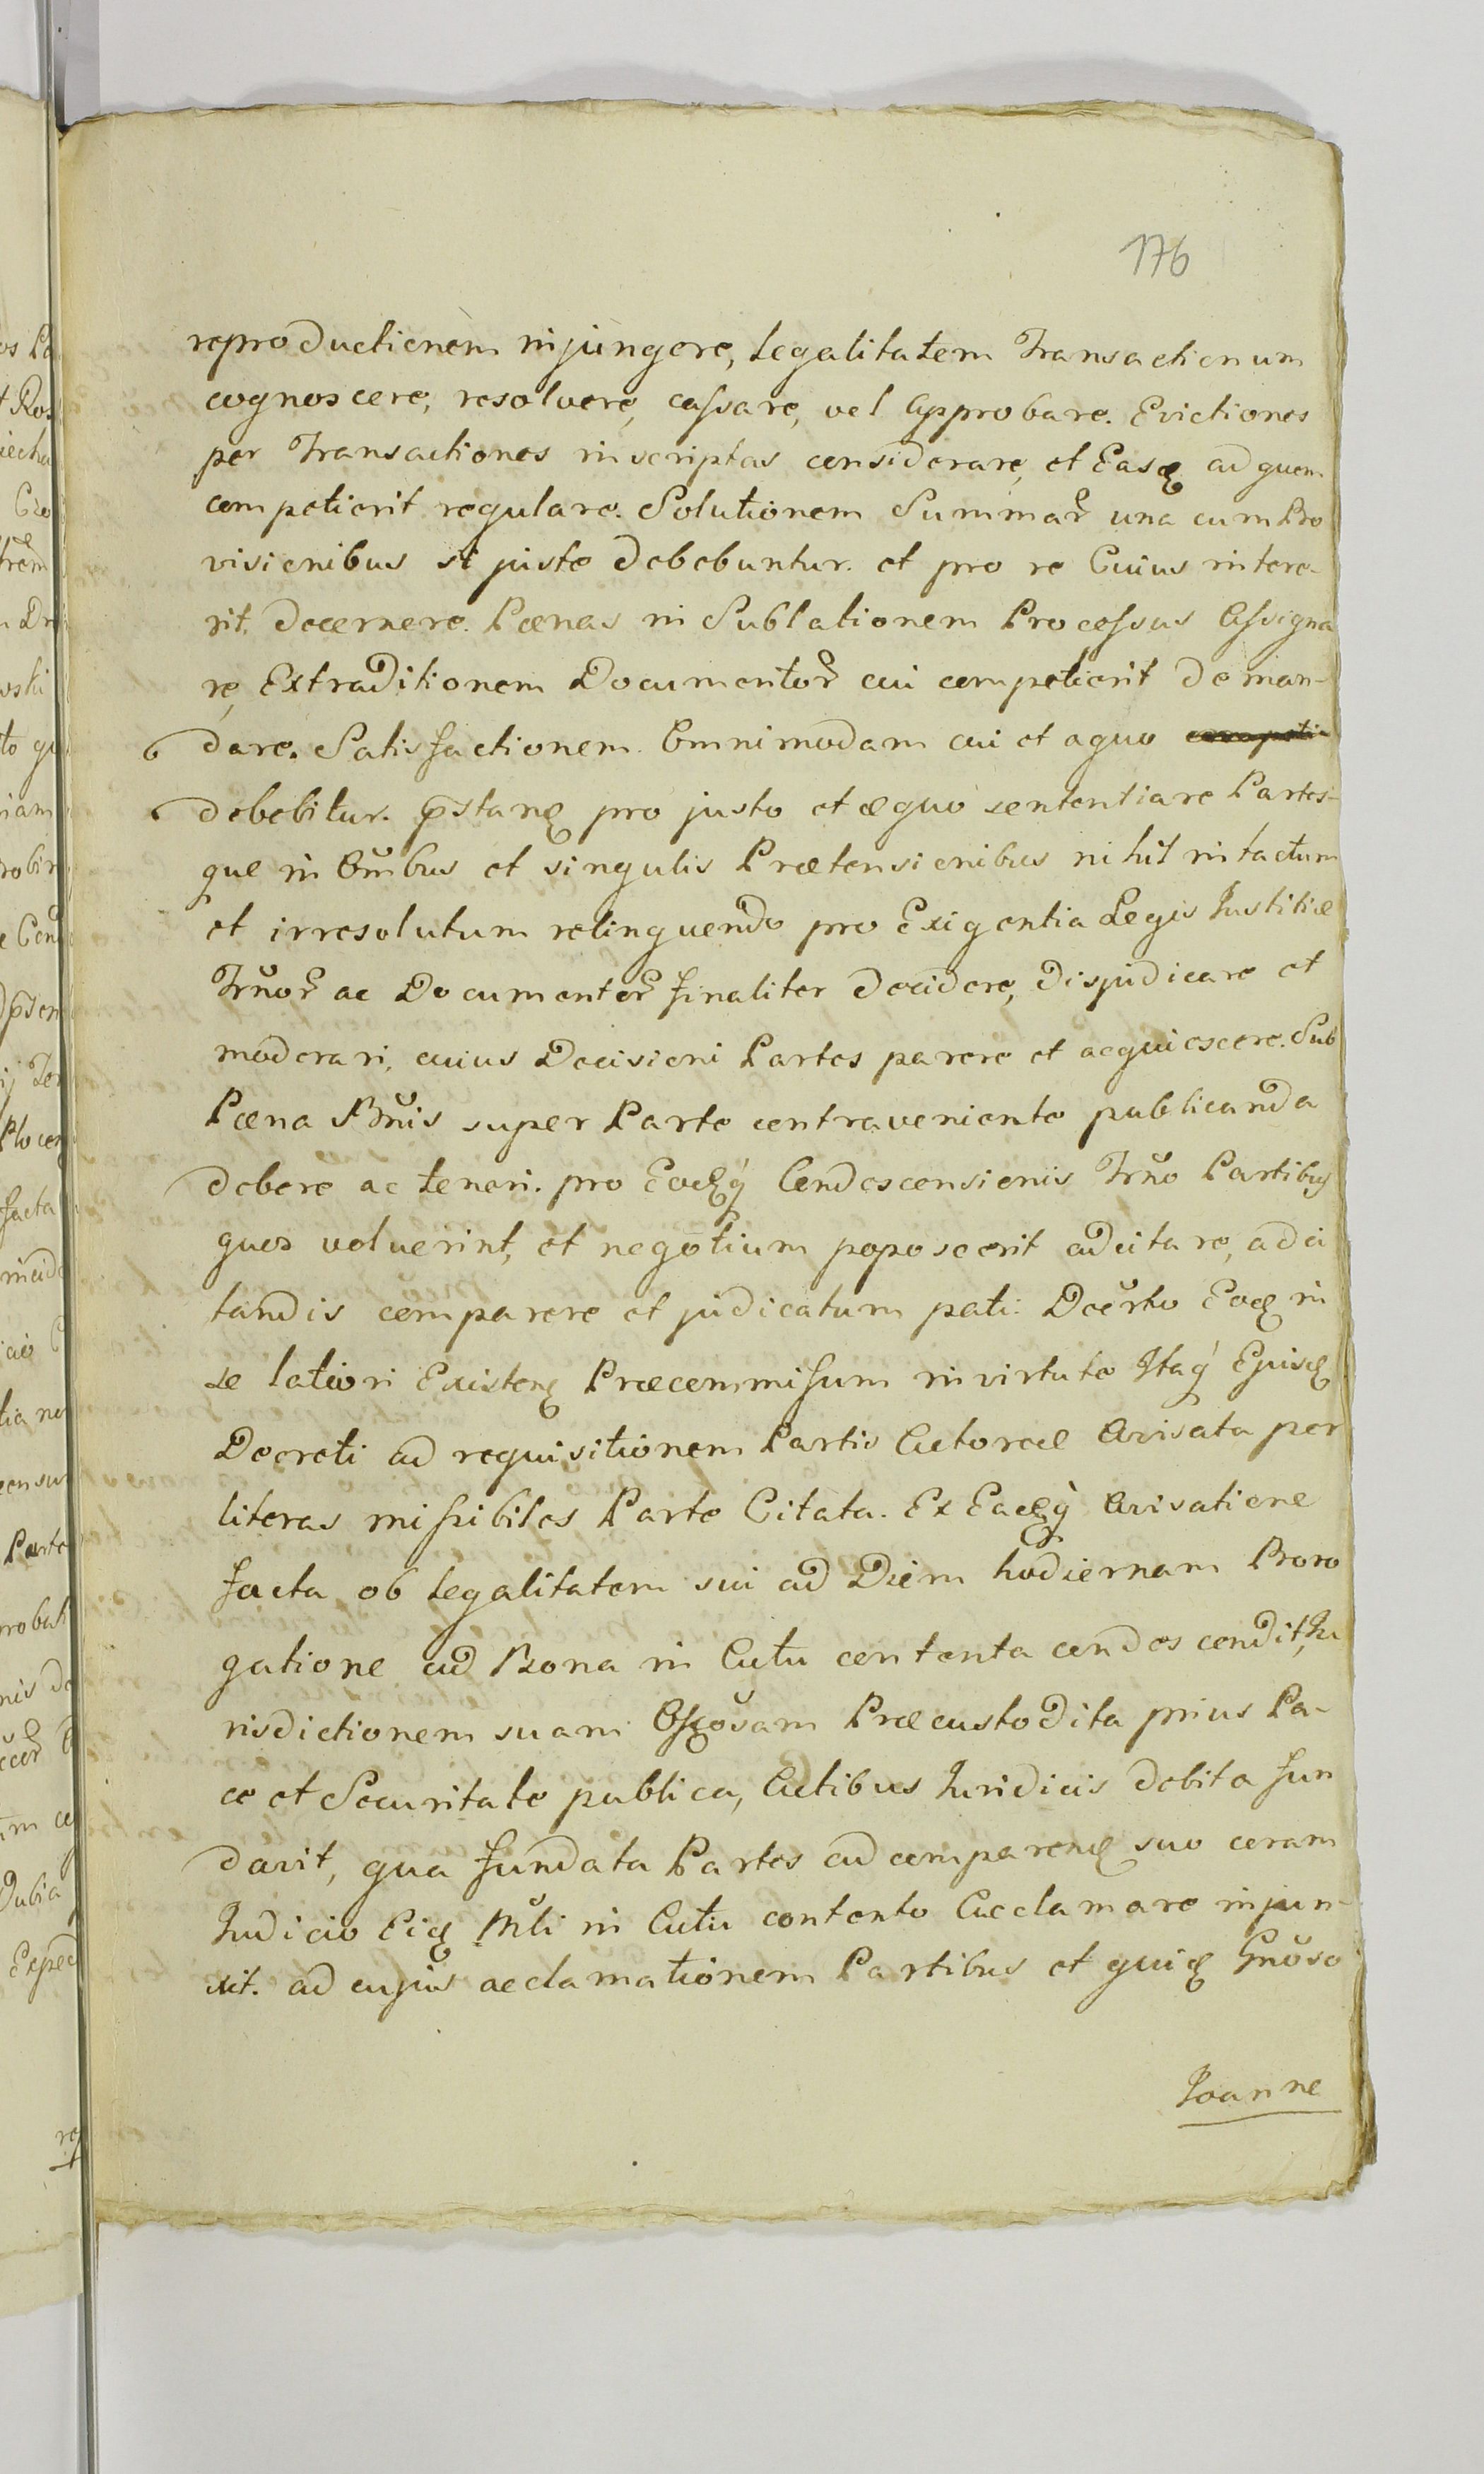 176
reproductionem injungere, legalitatem Transactionum
cognoscere, resolvere, cassare, vel Approbare. Evictiones
per Transactiones inscriptas considerare, et Easq ad quem
competierit regulare. Solutionem Summar una cum Pro
visionibus si juste debebuntur. et pro re Cuius intere-
rit. decernere. Pœnas in Sublationem Processus Assigna
re, Extraditionem Documentor cui competierit deman-
dare. Satisfactionem Omnimodam cui et a quo
debebitur. pstanq pro justo et æquo sententiare Partes-
que in Ombus et singulis Prætensionibus nihil intactum
et irresolutum relinquendo pro Exigentia Legis Justitiæ
Trnor ac Documentor finaliter decidere, dispudicare et
moderari, cuius Decisioni Partes parere et acquiescere. Sub
Pœna Bnis super Parte contraveniente publicanda
debere ac teneri. pro Eodq Condescensionis Trno Partibus
quos voluerint, et negotium poposcerit adcitare, adci
tandis comparere et judicatum pati. Decrto Eoq in
se latiori Existenq Præcommissum in virtute Itaq Ejusq
Decreti ad requisitionem Partis Actoreæ Avisata per
literas missibiles Parte Citata. Ex Eadq Avisatione
facta ob legalitatem sui ad Diem hodiernam Proro
gatione ad Bona in Actu contenta condescendit, Ju
risdictionem suam Offosam Præcustodita prius Pa-
ce et Securitate publica, Actibus Juridicis debita fun
davit, qua fundata Partes ad comparenq suo coram
Judicio Eiq Mli in Actu contento Acclamare injun-
xit. ad cujus acclamationem Partibus et quiq Gnoso
Joanne